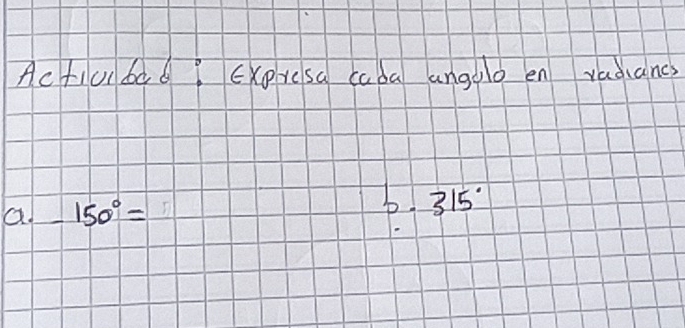 Actividad : Expresa cada angulo en radianes
a. -150° =
b. 315°